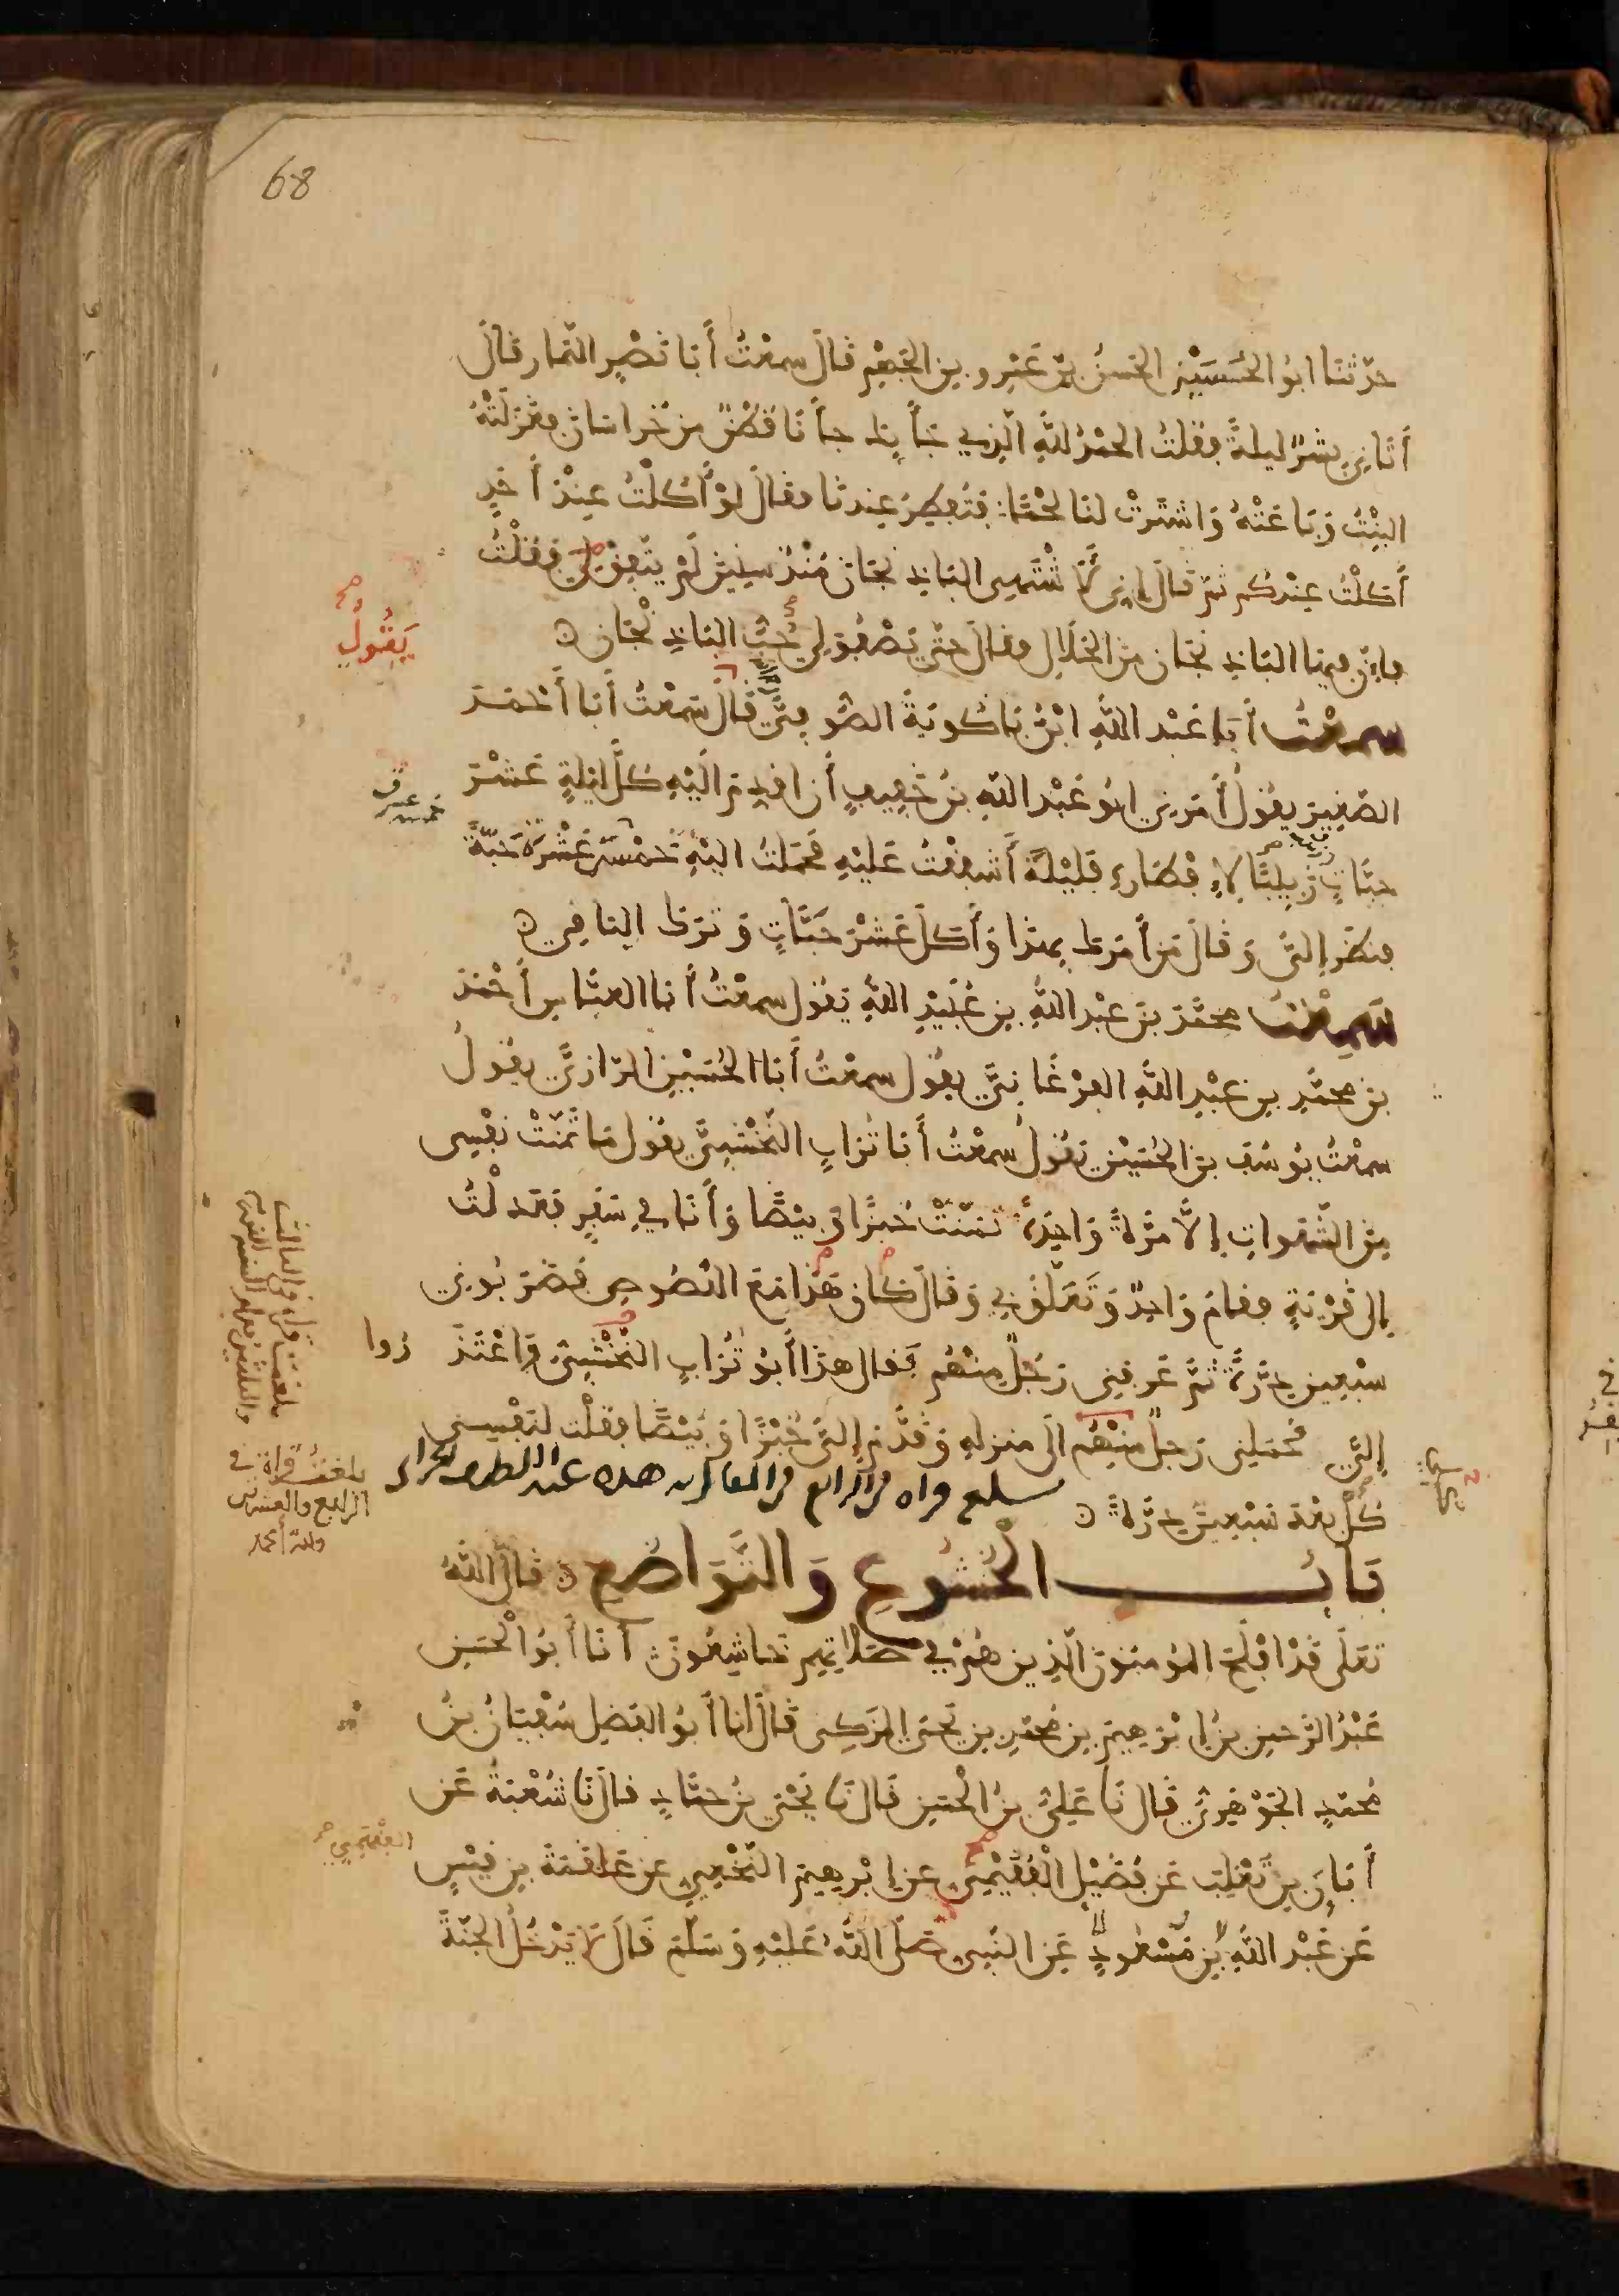 68
حدّثنا ابو الحُسَيْنِ الحَسنُ بنُ عَمْرو بنِ الجَهْمِ قالَ سمعْتُ أبَا نَصْرٍ التّمار قالَ
أتَانِي بِشرٌ ليلةً فقلتُ الحمْدُ للهِ الّذِي جَأَ بِكَ جأَنَا قُطْنٌ من خُراسَانَ فغَزَلَتْهُ
البِنْتُ وَبَاعَتْهُ وَاشتَرتْ لنَا لحْمًا فتُفطِرُ عِندنَا فقالَ لوْ أَكلْتُ عِنْدَ أَحَدٍ
أَكلْتُ عِنْدكُم ثمّ قالَ إنِي لأَشْتَهِى الباذِنجَانَ مُنْذُ سِنِينَ لَمْ يتّفِقْ لِي فقُلْتُ
فإنّ فيهَا الباذِنجَان منَ الحَلَالِ فقالَ حتّى يَصْفُوَ لِي حُبُّ الباذِنْجَانِ ن
سمعْتُ أبَا عَبْد اللهِ ابْنَ بَاكُويَةَ الصُّوفِىَّ قالَ سَمعْتُ أبَا أَحْمَدَ
الصّغِيرَ يقُولُ أَمَرنِي ابُو عَبْد اللهِ بنُ خَفِيفٍ أن اقدِمَ اليْهِ كلَّ ليْلةٍ عَشْرَ
حبّاتٍ زَبِيبًا لإِفْطَارِهِ فَلَيْلَةً أَشفقْتُ عَليْهِ فحَملتُ اليْهِ خَمْسَ عَشْرَةَ حَبّةً
فنظَر إلىّ وَقالَ مَن أَمَرَكَ بِهذَا وَأَكلَ عَشْرَ حَبَّاتٍ وَتَركَ البَاقِي ن
سَمِعْتُ محمّدَ بنَ عبْد اللهِ بنِ عُبَيْدِ اللهِ يَقُول سمعْتُ أبا العبّاس أَحْمَدَ
بنَ محمّدِ بنِ عبْدِ اللهِ الفَرْغَانِيَّ يقُول سمعْتُ أَبَا الحُسَيْنِ الرّازِىَّ يقُولُ
سمعْتُ يُوسُفَ بنَ الحُسَيْنِ يَقُولُ سمعْتُ أَبَا تُرَابٍ النَّخْشَبِىَّ يقُول مَا تَمَنّتْ نفْسِى
مِنَ الشّهَواتِ إلاَّ مَرَّةً وَاحِدَةً تمَنّتْ خُبزًا وَبيْضًا وَأنَا فِي سَفَرٍ فعَدلْتُ
إلى قَرْيَةٍ فقامَ وَاحِدٌ وَتَعَلَّقَ بِي وَقالَ كانَ هَذَا مَعَ اللّصُوصِ فضَرَبُونِي
سبْعِينَ دِرَّةً ثمَّ عَرفنِى رَجُلٌ مِنْهُم فَقال هذَا أبُو تُرَابٍ النَّخْشَبِىّ فَاعْتَذَرُوا
إلىَّ فحَملنِى رَجلٌ مِنْهُم الَى منزلهِ وَقَدَّمَ إلىَّ خُبْزًا وَبَيْضًا فقلْت لنَفْسِى
كُلْ بعْدَ سَبْعِينَ دِرَّةً ن
بَابُ الْخُشُوعِ وَالتَّوَاضُعِ ن قالَ اللهُ
تعَلَى قدْ افْلَحَ المُؤمنُونَ الَّذِينَ هُمْ فِي صَلاتِهِم خَاشِعُونَ أنَا أبُو الْحَسَنِ
عَبْدُ الرَّحمنِ بنُ إبْرَهِيمَ بنِ مُحمّدِ بنِ يَحيَى المزَكِى قالَ انا أبُو الفَضْلِ سُفْيَانُ بنُ
مُحمّدٍ الجَوْهَرِىُّ قَال نَا عَلِىُّ بنُ الْحسَنِ قالَ نَا يَحْيَى بنُ حمَّادٍ قالَ نَا شُعْبَةُ عَن
أَبَانَ بنِ تَغْلِبَ عَن فُضَيْلٍ الْفُقَيْمِىِ عن إِبْرهِيمَ النّخْعِيِّ عن عَلقَمَةَ بنِ قيْسٍ
عَن عَبْد اللهِ بنِ مَسْعُودٍ عَنِ النّبِى صَلَّى اللهُ عَليْهِ وَسَلّمَ قَالَ لَا يَدْخُلُ الجَنّةَ
يَقُولُ
خمس عشرة
بلغت قراة في
الرابع والعشرين
ولله الحمد
الفُقَيْمِي